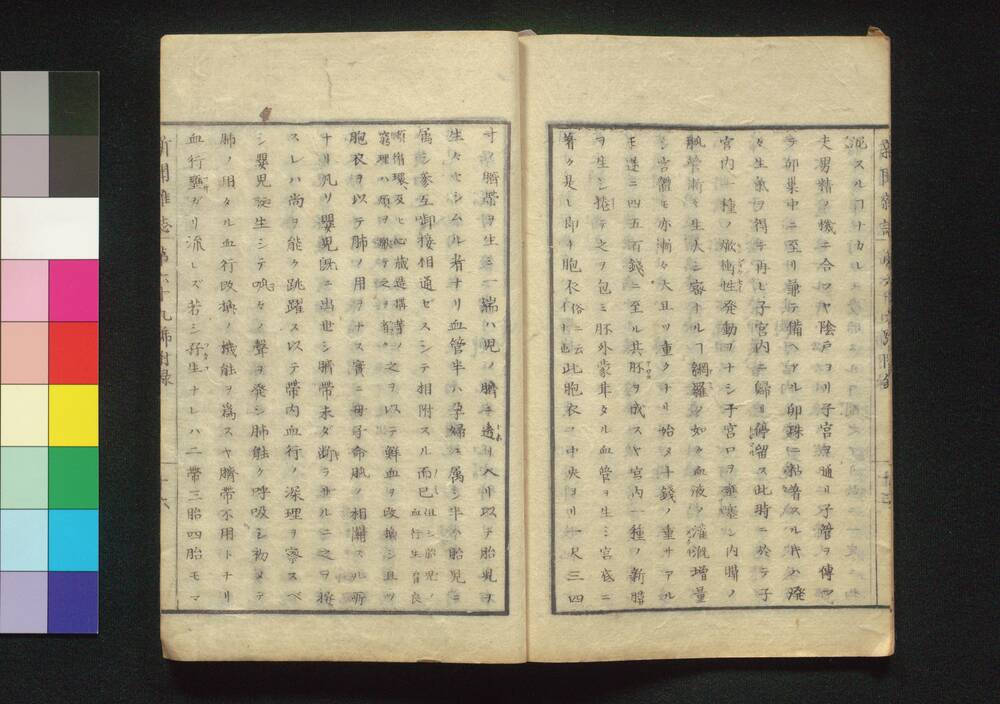 泥スルコナカレ
夫男精ノ機ニ合フヤ陰戸ヨリ子宮ニ通リ子管ヲ傳ツ
テ卵巣中ニ至リ備ヘアル卵珠ニ黏着スル代ハ
々生氣ヲ得テ再ヒ子宮内ニ歸リ停留ス此時ニ於テ子
宮内一種ノ衝性発動ヲナシ子宮口ヲ塞シ内ノ
漸々生大シ密ナルヿ網羅ノ如ク血液ノ灌漑増量
シ宮體モ亦漸々大且ツ重クナリ始メ十錢ノ重サアル
モ遂ニ四五百錢ニ至ル其胚ヲ成スヤ宮内一種ノ新膜
ヲ生シ捲テ之ヲ包ミ胚外蒙茸タル血管ヲ生ミ宮底ニ
著ク是レ即チ胞衣俗ニ云此胞衣ノ中央ヨリ一尺三四
寸ノ臍帯ヲ生ミ一端ハ児ノ臍ニ透リ入リ以テ胎児ヲ
生々セシムル者ナリ血管半ハ孕婦ニ属シ半ハ胎児ニ
属シ互御接相通ゼスシテ相附スル而已但シ胎児ノ血行生育良
循環及ヒ心蔵造構等ノ窮理ハ煩ヲ之ヲ之ヲ以テ鮮血ヲ改換シ且ツ
胞衣ヲ以テ肺ノ用ヲナス實ニ母子命脈ノ相關スル所
ナリ凡ソ嬰児既ニ出世シ臍帯未タ断ラサルニ之ヲ按
スレハ尚ヲ能ク跳躍ス以テ帯内血行ノ深理ヲ察スベ
シ嬰児誕生シテ呱々ノ聲ヲ発シ肺能ク呼吸シ初メテ
肺ノ用タル血行改換ノ機能ヲ為スヤ臍帯不用トナリ
血行壅ガリ流レズ若シ孖生ナレハ二帯三胎四胎モマ
新聞雑誌 第六十九號附録